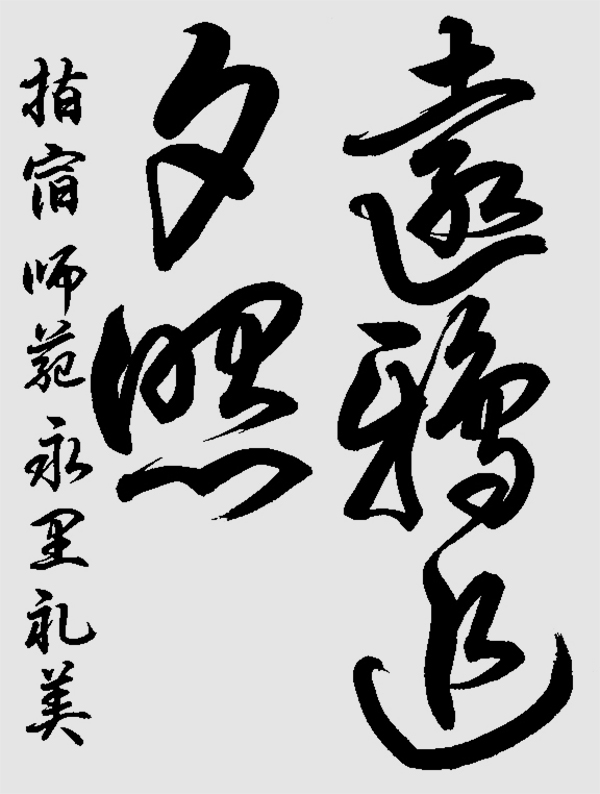 遠鴉追
夕照
指宿師範永里礼美